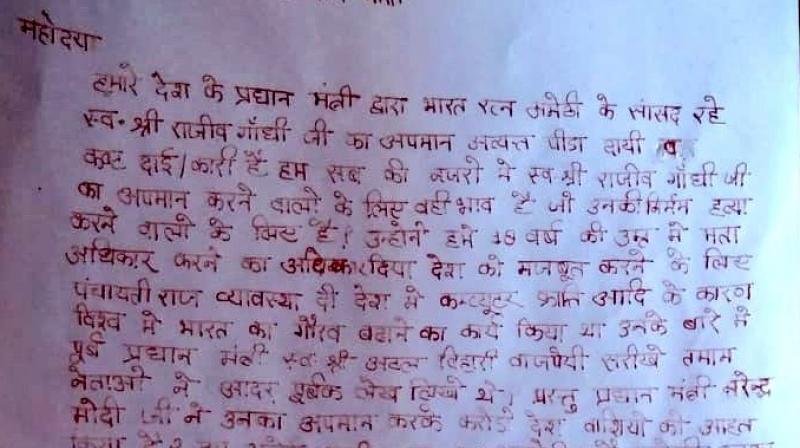 महोदया
हमारे देश के प्रधान मंत्री द्वारा भारत रत्न अमेठी के सांसद रहे
स्व० श्री राजीव गाँधी जी का अपमान अत्यन्त पीडा दायी व
कष्ट दाई/कारी है हम सब की नजरो मे स्व श्री राजीव गाँधी जी
का अपमान करने वालो के लिए वही भाव है जो उनकी निर्मम हत्या
करने वालो के लिए है। उन्होंने हमे 18 वर्ष की उम्र मे मता
अधिकार करने का अधिकार दिया देश को मजबूत करने के लिए
पंचायती राज व्यावस्था दी देश मे कम्प्यूटर क्रान्ति आदि के कारण
विश्व मे भारत का गौरव बढाने का कार्य किया था उनके बारे मे
पूर्व प्रधान मंत्री स्व श्री अटल बिहारी वाजपेयी सरीखे तमाम
नेताओ ने आदर पूर्वक लेख लिखे थे। परन्तु प्रधान मंत्री नरेन्द्र
मोदी जी ने उनका अपमान करके करोडो देश वाशियो को आहत
किया है